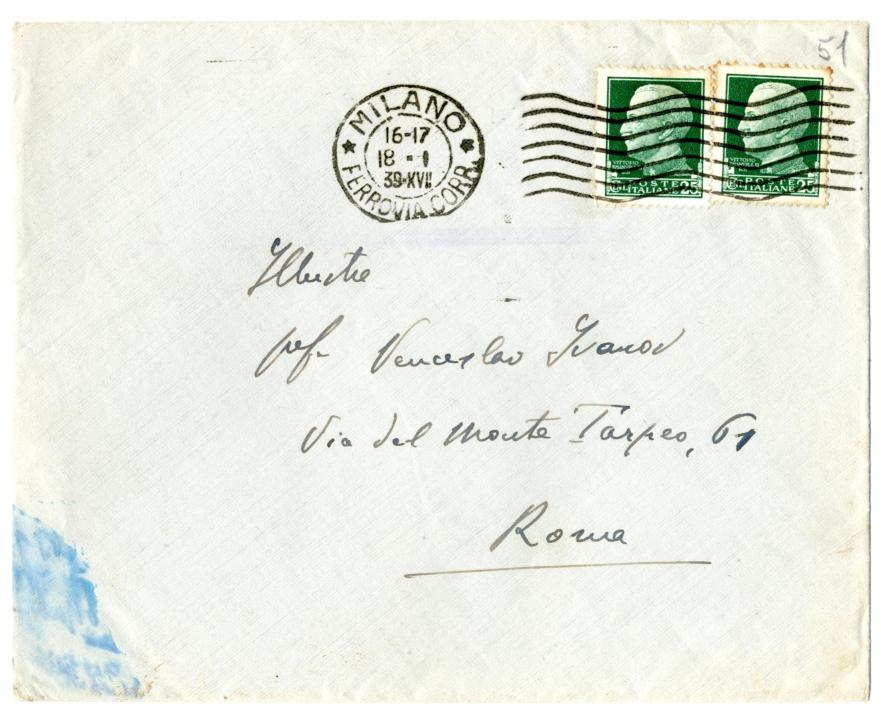 51
MILANO
16-17
18 - 1
39·XVII
FERROVIA CORR.
VITTORIO
POSTE
ITALIANE 25
VITTORIO
POSTE
ITALIANE 25
Illustre
prof. Venceslao Ivanov
Via del Monte Tarpeo, 61
Roma